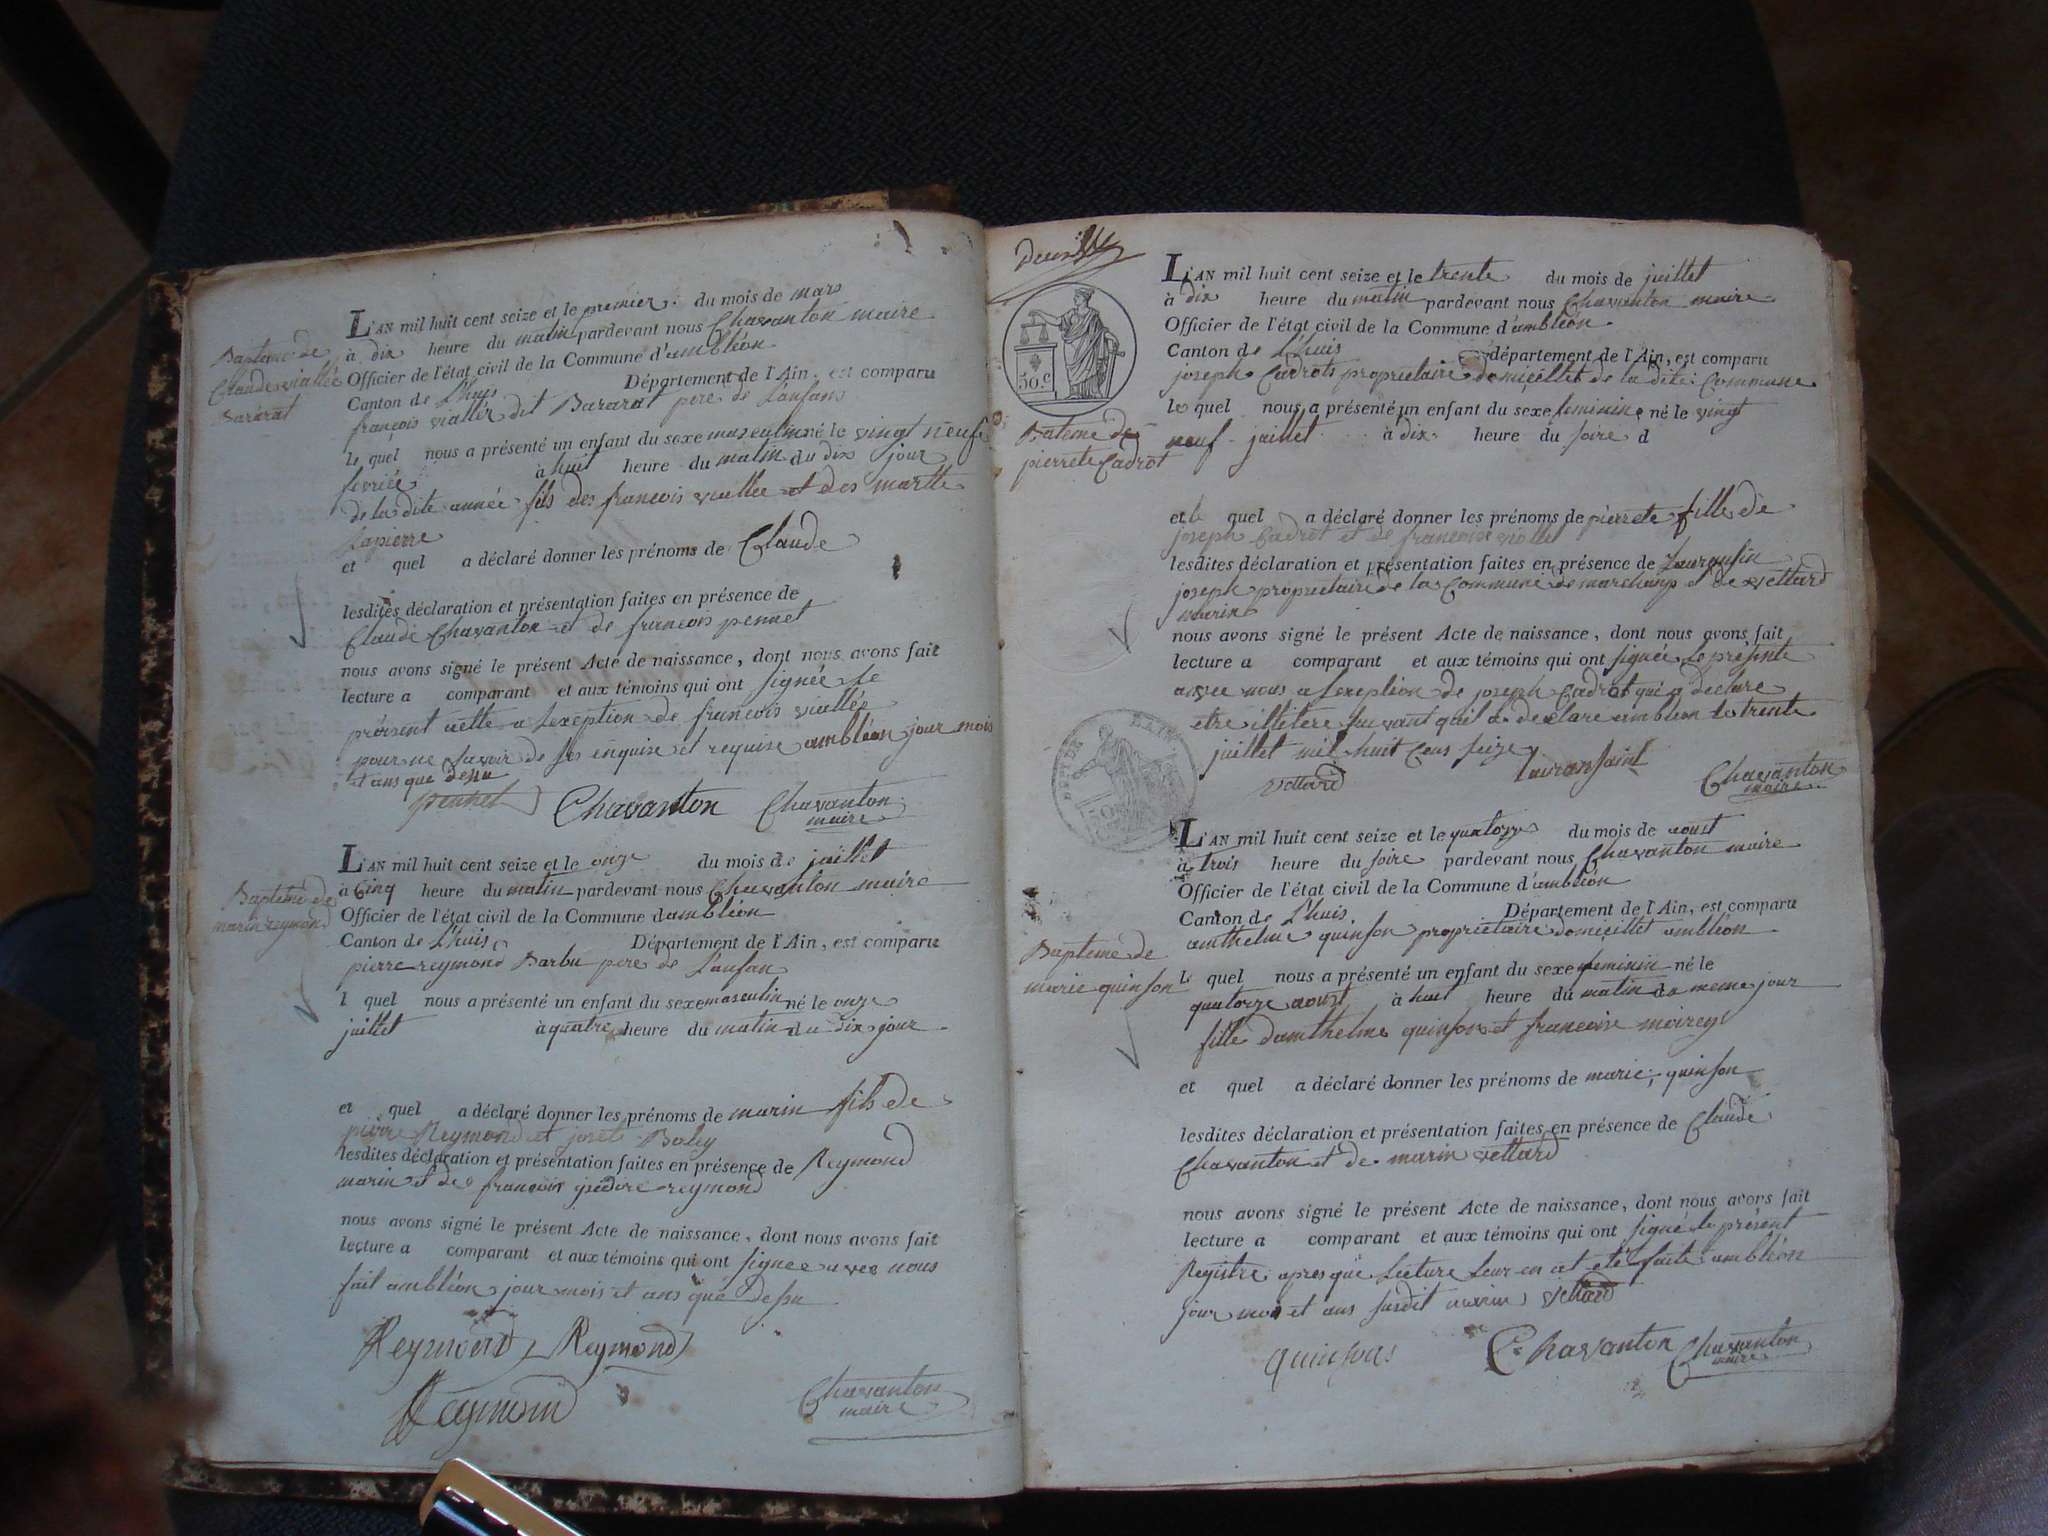 Bapteme de
Claude viallée
Bararat
L'AN mil huit cent seize et le premier du mois de mars
à dix heure du matin pardevant nous Chavanton maire
Officier de l'état civil de la Commune d'ambléon
Canton de L'huis Département de l'Ain, est comparu
françois viallée dit Bararat pere de l'anfans
le quel nous a présenté un enfant du sexe masculin né le vingt neufe
à huit heure du matin du dix jour
de la dite année fils de francois viallée et des martte
Lapierre
et quel a déclaré donner les prénoms de Claude
lesdites déclaration et présentation faites en présence de
Claude Chavanton et de francois pennet
nous avons signé le présent Acte de naissance, dont nous avons fait
lecture a comparant et aux témoins qui ont signée le
présent a de francois viallée
pour ne savoir de enquise et requise ambléon jour mois
et ans que dessu
pennet Chavanton Chavanton
maire
Bapteme de
marin reymond
L'AN mil huit cent seize et le onze du mois de juillet
à Cinq heure du matin pardevant nous Chavanton maire
Officier de l'état civil de la Commune d'ambléon
Canton de L'huis Département de l'Ain, est comparu
pierre reymond Barbu pere de L'anfan
l quel nous a présenté un enfant du sexe masculin né le onze
juillet à quatre heure du matin du dix jour
et quel a déclaré donner les prénoms de marin fils de
pierre Reymond et
lesdites déclaration et présentation faites en présence de Reymond
marin et de francois reymond
nous avons signé le présent Acte de naissance, dont nous avons fait
lecture a comparant et aux témoins qui ont signee avec nous
fait ambléon jour mois et ans que dessu
Reymond Reymond
Reymond Chavanton
maire
50 c
Bateme de
pierrete Cadrot
L'AN mil huit cent seize et le trente du mois de juillet
à dix heure du matin pardevant nous Chavanton maire
Officier de l'état civil de la Commune d'ambléon
Canton de L'huis département de l'Ain, est comparu
joseph Cadrots propriétaire domicillet de la dite Commune
le quel nous a présenté un enfant du sexe feminin né le vingt
neuf juillet à dix heure du soire d
et le quel a déclaré donner les prénoms de pierrete fille de
joseph Cadrot et de francoise
lesdites déclaration et présentation faites en présence de
joseph propriétaire de la Commune de marchamp et de vettard
marin
nous avons signé le présent Acte de naissance, dont nous avons fait
lecture a comparant et aux témoins qui ont signée le présente
avec nous a de joseph Cadrot qui a declare
etre illitere suivant quil a declare ambléon le trente
juillet mil huit Cens seize
vettard Chavanton
maire
Bapteme de
marie quinson
L'AN mil huit cent seize et le quatorze du mois de aoust
à trois heure du soire pardevant nous Chavanton maire
Officier de l'état civil de la Commune d'ambléon
Canton de L'huis Département de l'Ain, est comparu
amthelme quinson propriétaire domicillet ambléon
le quel nous a présenté un enfant du sexe feminin né le
quatorze aoust à huit heure du matin du meme jour
fille damthelme quinson et francoise moirey
et quel a déclaré donner les prénoms de marie quinson
lesdites déclaration et présentation faites en présence de Claude
Chavanton et de marin vettard
nous avons signé le présent Acte de naissance, dont nous avons fait
lecture a comparant et aux témoins qui ont signé le présent
Registre apres que Lecture Leur en et eté faite ambléon
jour mois et ans susdit marin vettard
quinson C. Chavanton Chavanton
maire